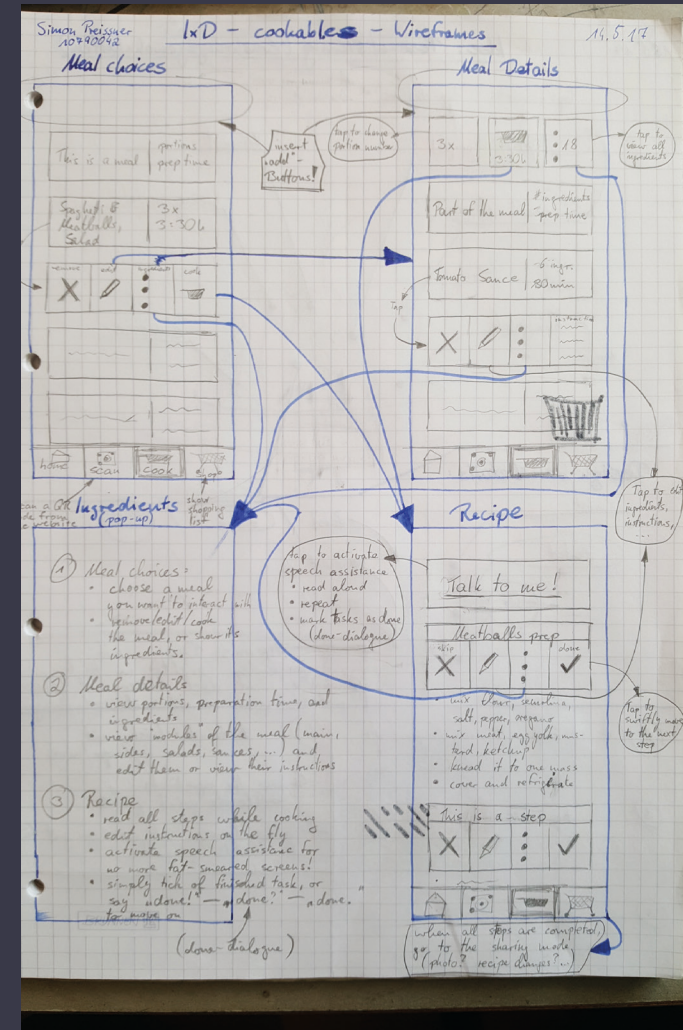 Simon Preissner
10790042
IxD - cookables - Wireframes
14.5.17
Meal choices
Meal Details
This is a meal
portions
prep time
Spaghetti &
Meatballs,
Salad
3x
3:30h
remove
edit
ingredients
cook
home
scan
cook
shop
insert
"add"-
Buttons!
tap to change
portion number
3x
3:30h
18
tap to
view all
ingredients
Part of the meal
# ingredients
prep time
Tomato Sauce
6 ingr.
80 min
Tap
instructions
Tap to edit
ingredients,
instructions,
...
show
shopping
list
scan a QR
code from
website
Ingredients
(pop-up)
Recipe
1 Meal choices:
• choose a meal
you want to interact with
• remove/edit/cook
the meal, or show its
ingredients.
2 Meal details
• view portions, preparation time, and
ingredients
• view "modules" of the meal (main,
sides, salads, sauces, ...) and,
edit them or view their instructions
3 Recipe
• read all steps while cooking
• edit instructions on the fly
• activate speech assistance for
no more fat-smeared screens!
• simply tick of finished task, or
say "done!" — "done?" — "done."
to move on
(done-dialogue)
tap to activate
speech assistance
• read aloud
• repeat
• mark tasks as done
(done-dialogue)
Talk to me!
Meatballs prep
skip
done
• mix flour, semolina,
salt, pepper, oregano
• mix meat, egg yolk, mus-
tard, ketchup
• knead it to one mass
• cover and refrigerate
tap to
swiftly move
to the next
step
This is a step
when all steps are completed,
go to the sharing mode
(photo? recipe changes?...)